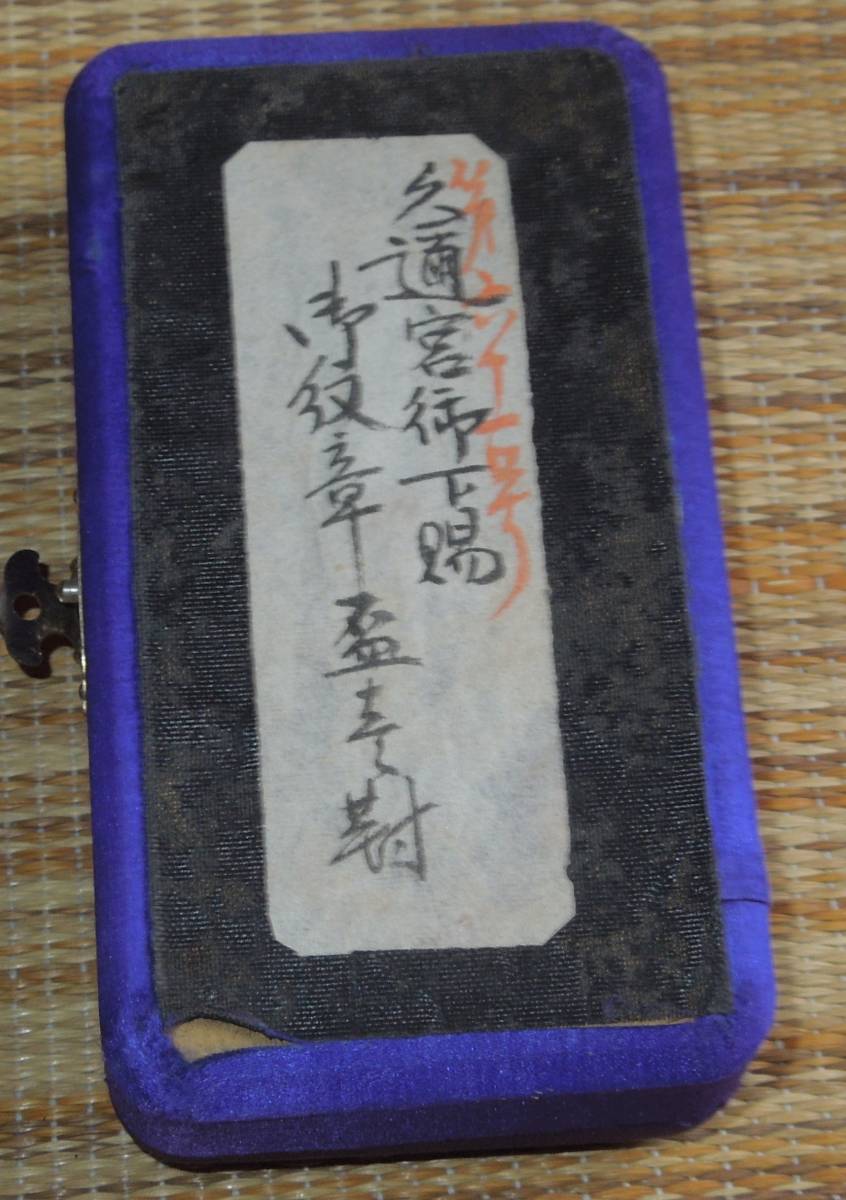 第六十一号
久邇宮御下賜
御紋章盃壱對